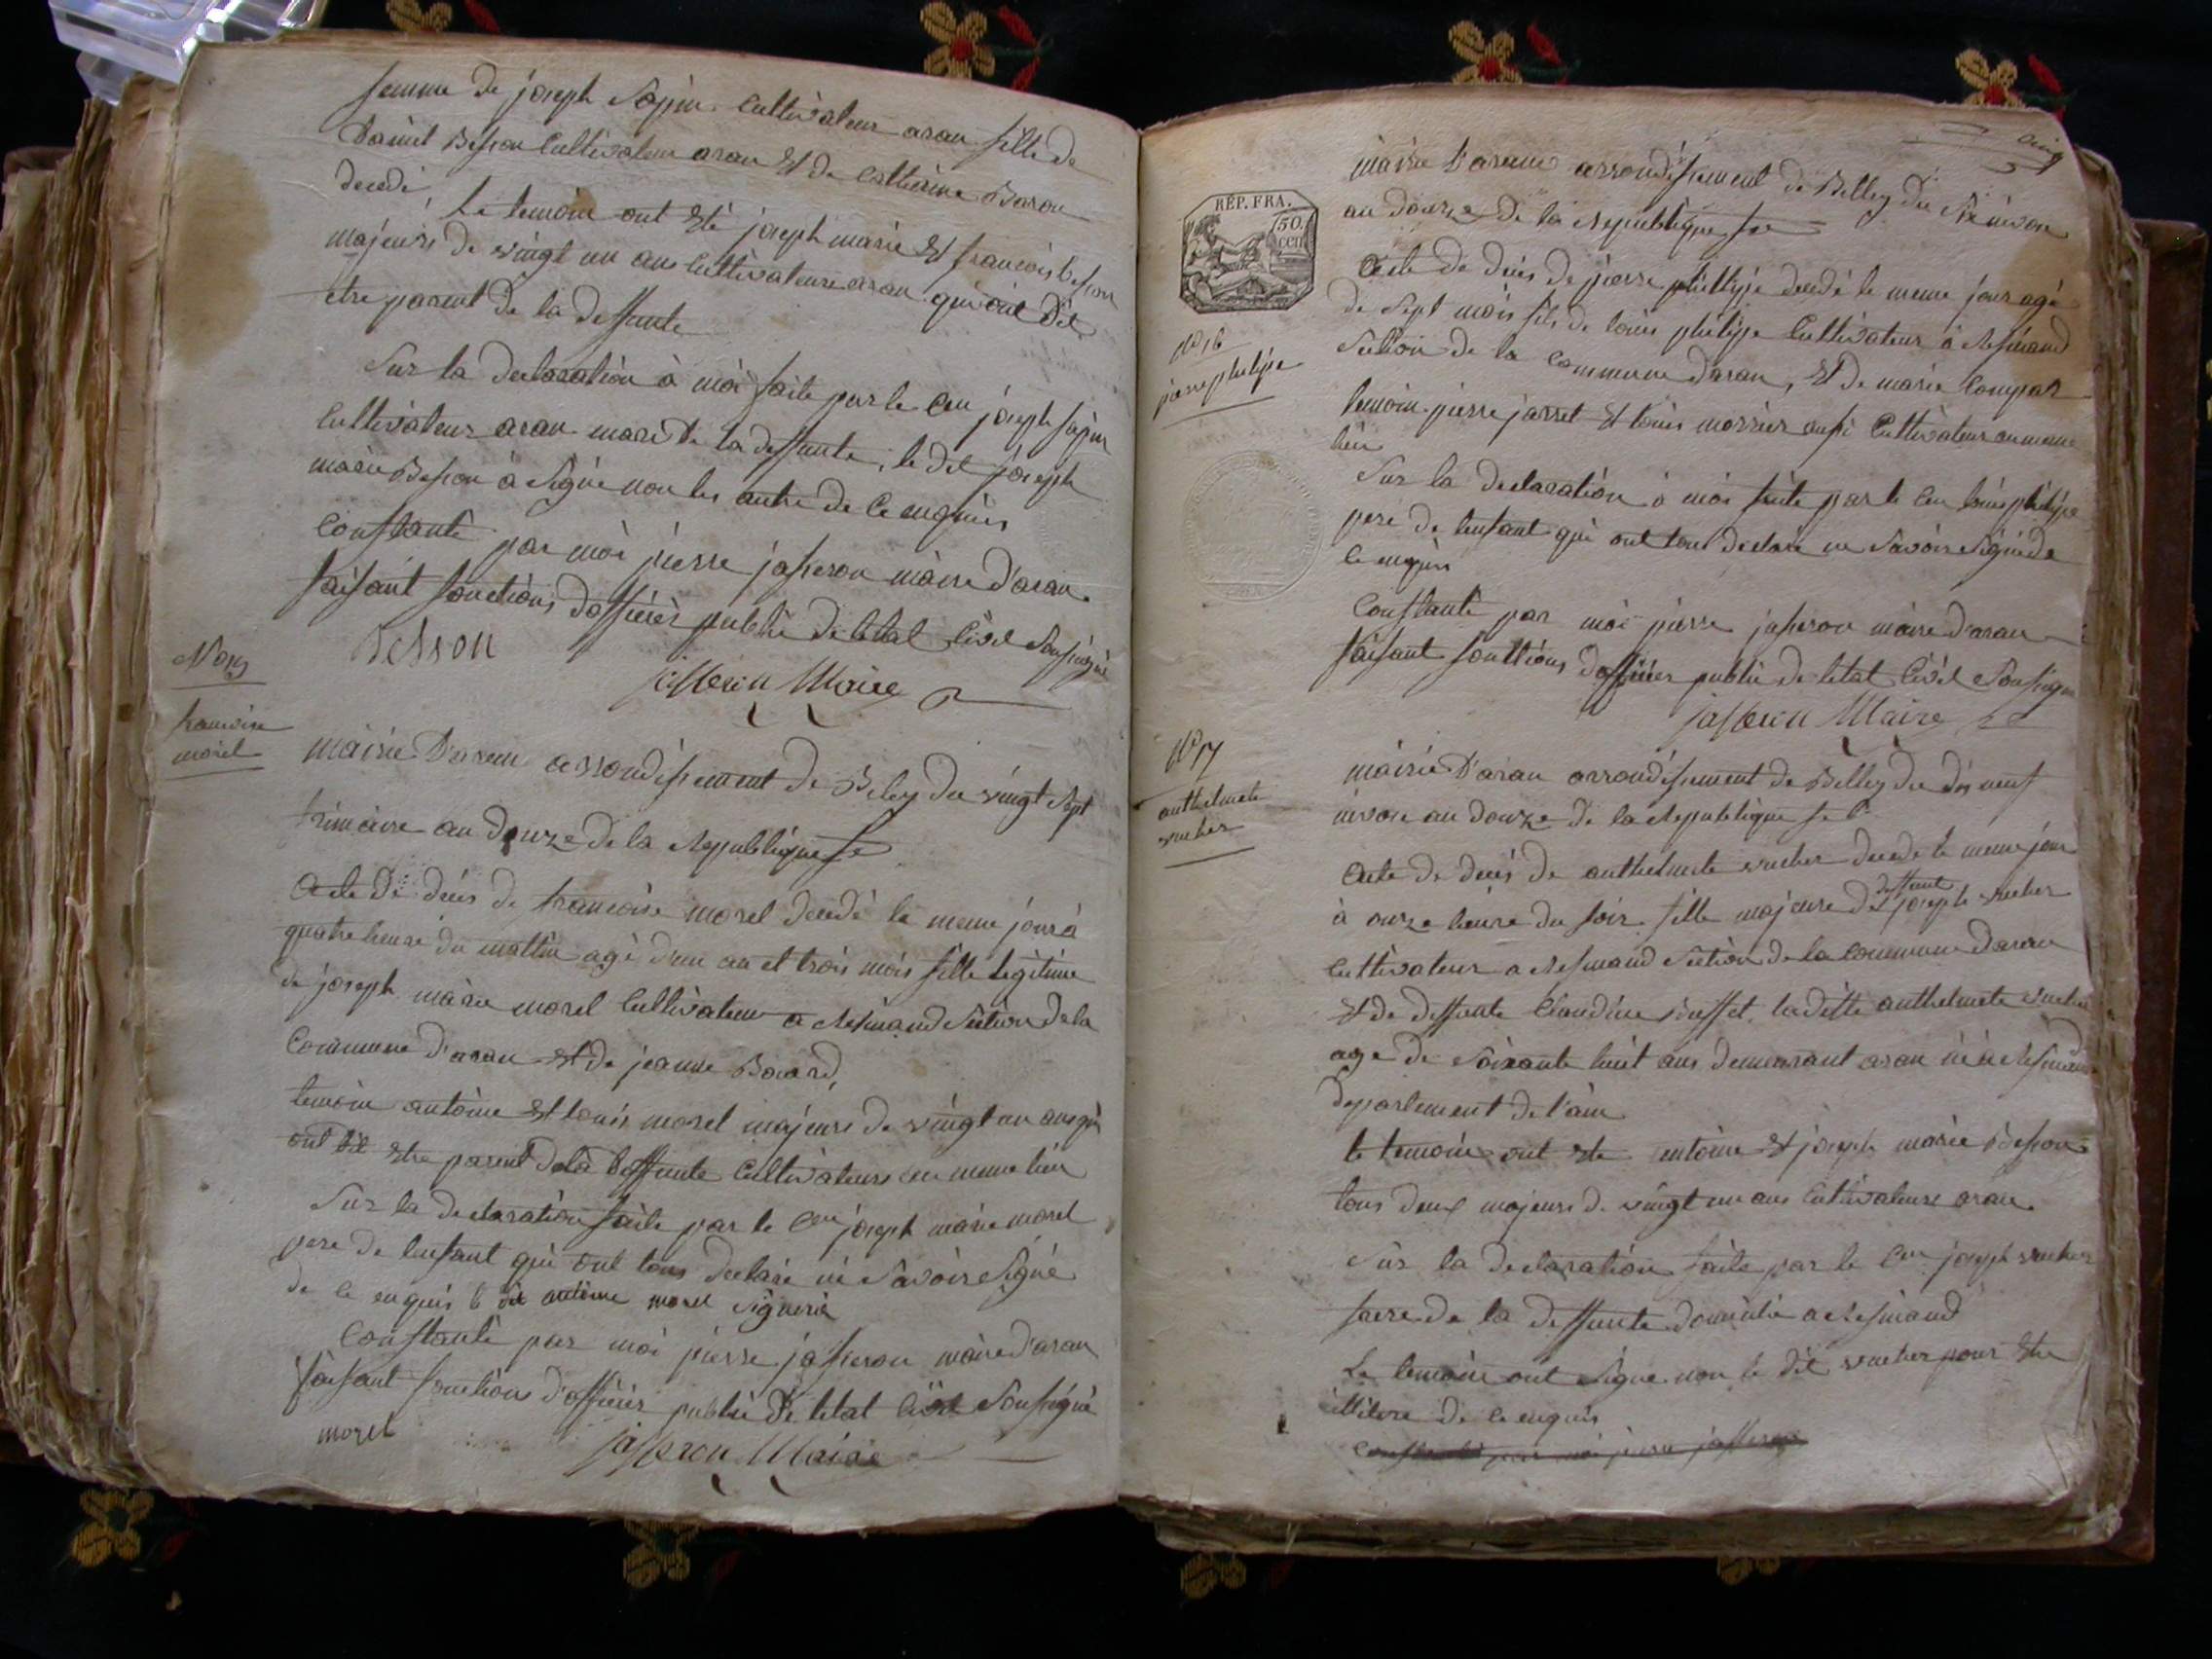 femme de joseph Sapin Cultivateur aran fille de
Daniel Besson Cultivateur aran Et de Catherine Baron
decedé
Le temoin ont Eté joseph marie Et francois besson
majeurs de vingt un ans Cultivateurs aran qui ont dit
etre parent de la deffunte
Sur la declaration à moi faite par le Cen joseph Sapin
Cultivateur aran mari de la deffunte, le dit joseph
marie Besson à Signé non les autre de ce enquis
Constaté par moi pierre jasseron maire d'aran
faisant fonctions dofficier public de letat Civil Sousigné
Besson
jasseron Maire
No 15
francoise
morel
mairie D'aran arrondissement de Beley du vingt Sept
frimaire an douze de la Republique fse
Acte De décés de francoise morel decedé le meme jour à
quatre heure du mattin agé d'un an et trois mois fille legitime
de joseph marie morel Cultivateur a Resinand Section de la
Commune d'aran Et de jeanne Borard,
temoin antoine Et louis morel majeurs de vingt un ans qui
ont dit Etre parent de la deffunte Cultivateurs au meme lieu
Sur la declaration faite par le Cen joseph marie morel
pere de lenfant qui ont tous declaré ne Savoir Signé
de ce enquis le dit antoine morel Signerà
Constanté par moi pierre jasseron maire d'aran
faisant fonctions d'officier public de letat Civil Sousigné
morel
jasseron Maire
cinq
RÉP. FRA.
50
cen
mairie D'aran arrondissement de Belley du Six nivose
an douze de la Republique fse
No 16
pierre philipe
Acte de décés de pierre phillipe decedé le meme jour agé
de Sept mois fils de louis philipe Cultivateur à Resinand
Section de la Commune daran, Et de marie Compar
temoin pierre jarret Et louis morrier aussi Cultivateur au meme
lieu
Sur la declaration à moi faite par le Cen louis philipe
pere de lenfant qui ont tous declaré ne Savoir Signé de
ce enquis
Constanté par moi pierre jasseron maire d'aran
faisant fonctions dofficier public de letat Civil Sousigne
jasseron Maire
No 17
anthelmete
vucher
mairie D'aran arrondissement de Belley du dix neuf
nivose an douze de la Republique fse
Acte de décés de anthelmete vucher decedé le meme jour
à onze heure du soir fille majeure de deffunt joseph vucher
Cultivateur a Resinand Section de la Commune daran
Et de deffunte Claudine ladite anthelmete vucher
age de Soixante huit ans demeurant aran né à Resinand
departement de l'ain
le temoin ont Ete antoine Et joseph marie Besson
tous deux majeurs de vingt un ans Cultivateurs aran
Sur la declaration faite par le Cen joseph vucher
frere de la deffunte domicilié a Resinand
Le temoin ont Signe non le dit vucher pour Etre
illitere de ce enquis
Constanté par moi pierre jasseron